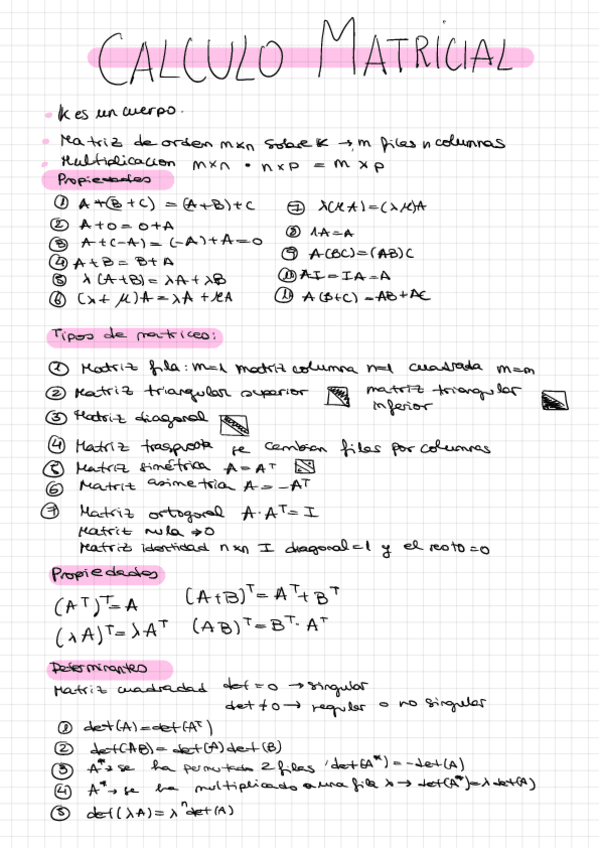 CALCULO MATRICIAL
K es un cuerpo.
Matriz de orden mxn sobre K → m filas n columnas
Multiplicacion mxn • nxp = mxp
Propiedades
① A+(B+C) = (A+B)+C
② A+0 = 0+A
③ A+(-A) = (-A)+A=0
④ A+B = B+A
⑤ λ(A+B) = λA+λB
⑥ (λ+μ)A = λA+μA
⑦ λ(μA)=(λμ)A
⑧ 1A=A
⑨ A(BC)=(AB)C
⑩ AI=IA=A
⑪ A(B+C)=AB+AC
Tipos de matrices:
① Matriz fila: m=1 matriz columna n=1 cuadrada m=n
② Matriz triangular superior matriz triangular
inferior
③ Matriz diagonal
④ Matriz traspuesta se cambian filas por columnas
⑤ Matriz simétrica A=Aᵀ
⑥ Matriz asimetria A=-Aᵀ
⑦ Matriz ortogonal A·Aᵀ=I
Matriz nula →0
Matriz identidad nxn I diagonal=1 y el resto=0
Propiedades
(Aᵀ)ᵀ=A (A+B)ᵀ=Aᵀ+Bᵀ
(λA)ᵀ=λAᵀ (AB)ᵀ=Bᵀ·Aᵀ
Determinantes
Matriz cuadradad det=0 → singular
det≠0 → regular o no singular
① det(A)=det(Aᵀ)
② det(AB)=det(A)det(B)
③ A*→ se ha permutado 2 filas det(A*)=-det(A)
④ A*→ se ha multiplicado a una fila λ → det(A*)=λdet(A)
⑤ det(λA)=λⁿdet(A)